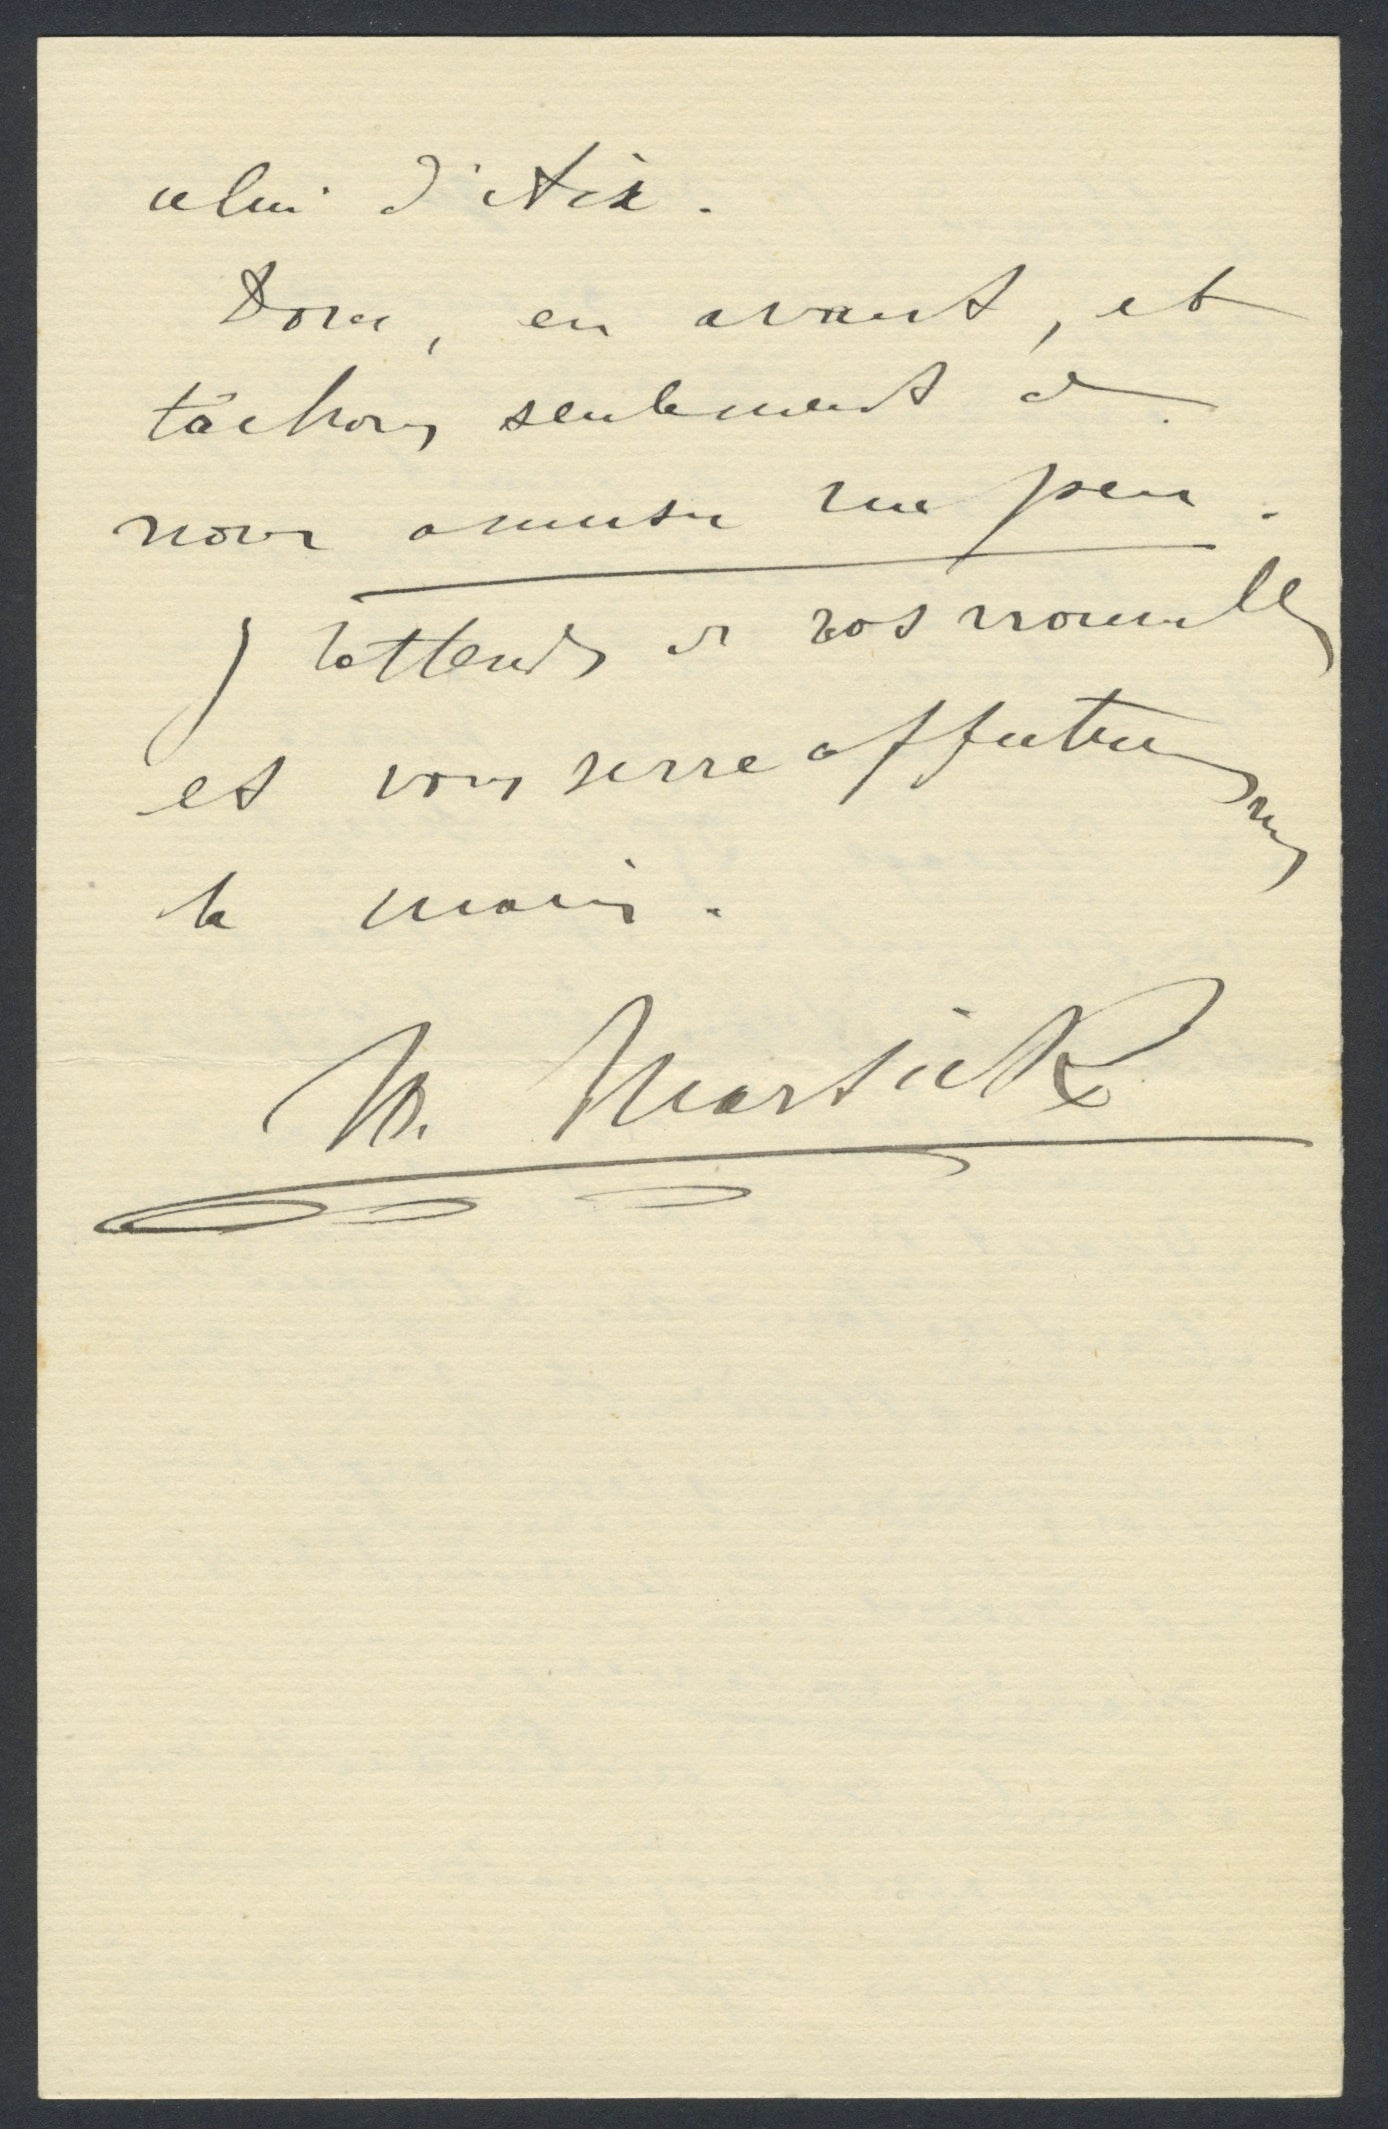 celui d'Aix.
Donc, en avant, et
tâchons seulement de
nous amuser un peu.
J'attends de vos nouvelles
et vous serre affectueusement
la main.
M. Marsick